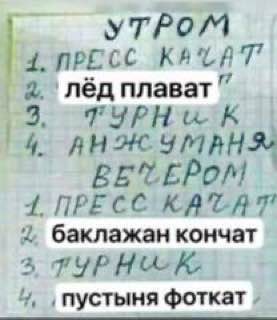 УТРОМ
1. ПРЕСС КАЧАТ
2. лёд плават
3. ТУРНИК
4. АНЖУМАНЯ
ВЕЧЕРОМ
1. ПРЕСС КАЧАТ
2. баклажан кончат
3. ТУРНИК
4. пустыня фоткат